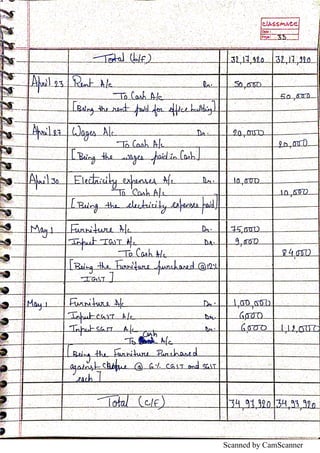 classmate
Date
Page 33
Total (b/F) 32,17,920 32,17,920
April 23 Rent A/c Dr. 50,000
To Cash A/c 50,000
[Being the rent paid for office building]
April 27 Wages A/c Dr. 20,000
To Cash A/c 20,000
[Being the wages paid in Cash]
April 30 Electricity expenses A/c Dr. 10,000
To Cash A/c 10,000
[Being the electricity expense paid]
May 1 Furniture A/c Dr. 75,000
Input IGST A/c Dr. 9,000
To Cash A/c 84,000
[Being the Furniture purchased @12%
IGST]
May 1 Furniture A/c Dr. 1,00,000
Input CGST A/c Dr. 6000
Input SGST A/c Dr. 6000 1,12,000
To Cash A/c
[Being the Furniture Purchased
against @ 6% CGST and SGST
each]
Total (C/F) 34,93,920 34,93,920
Scanned by CamScanner